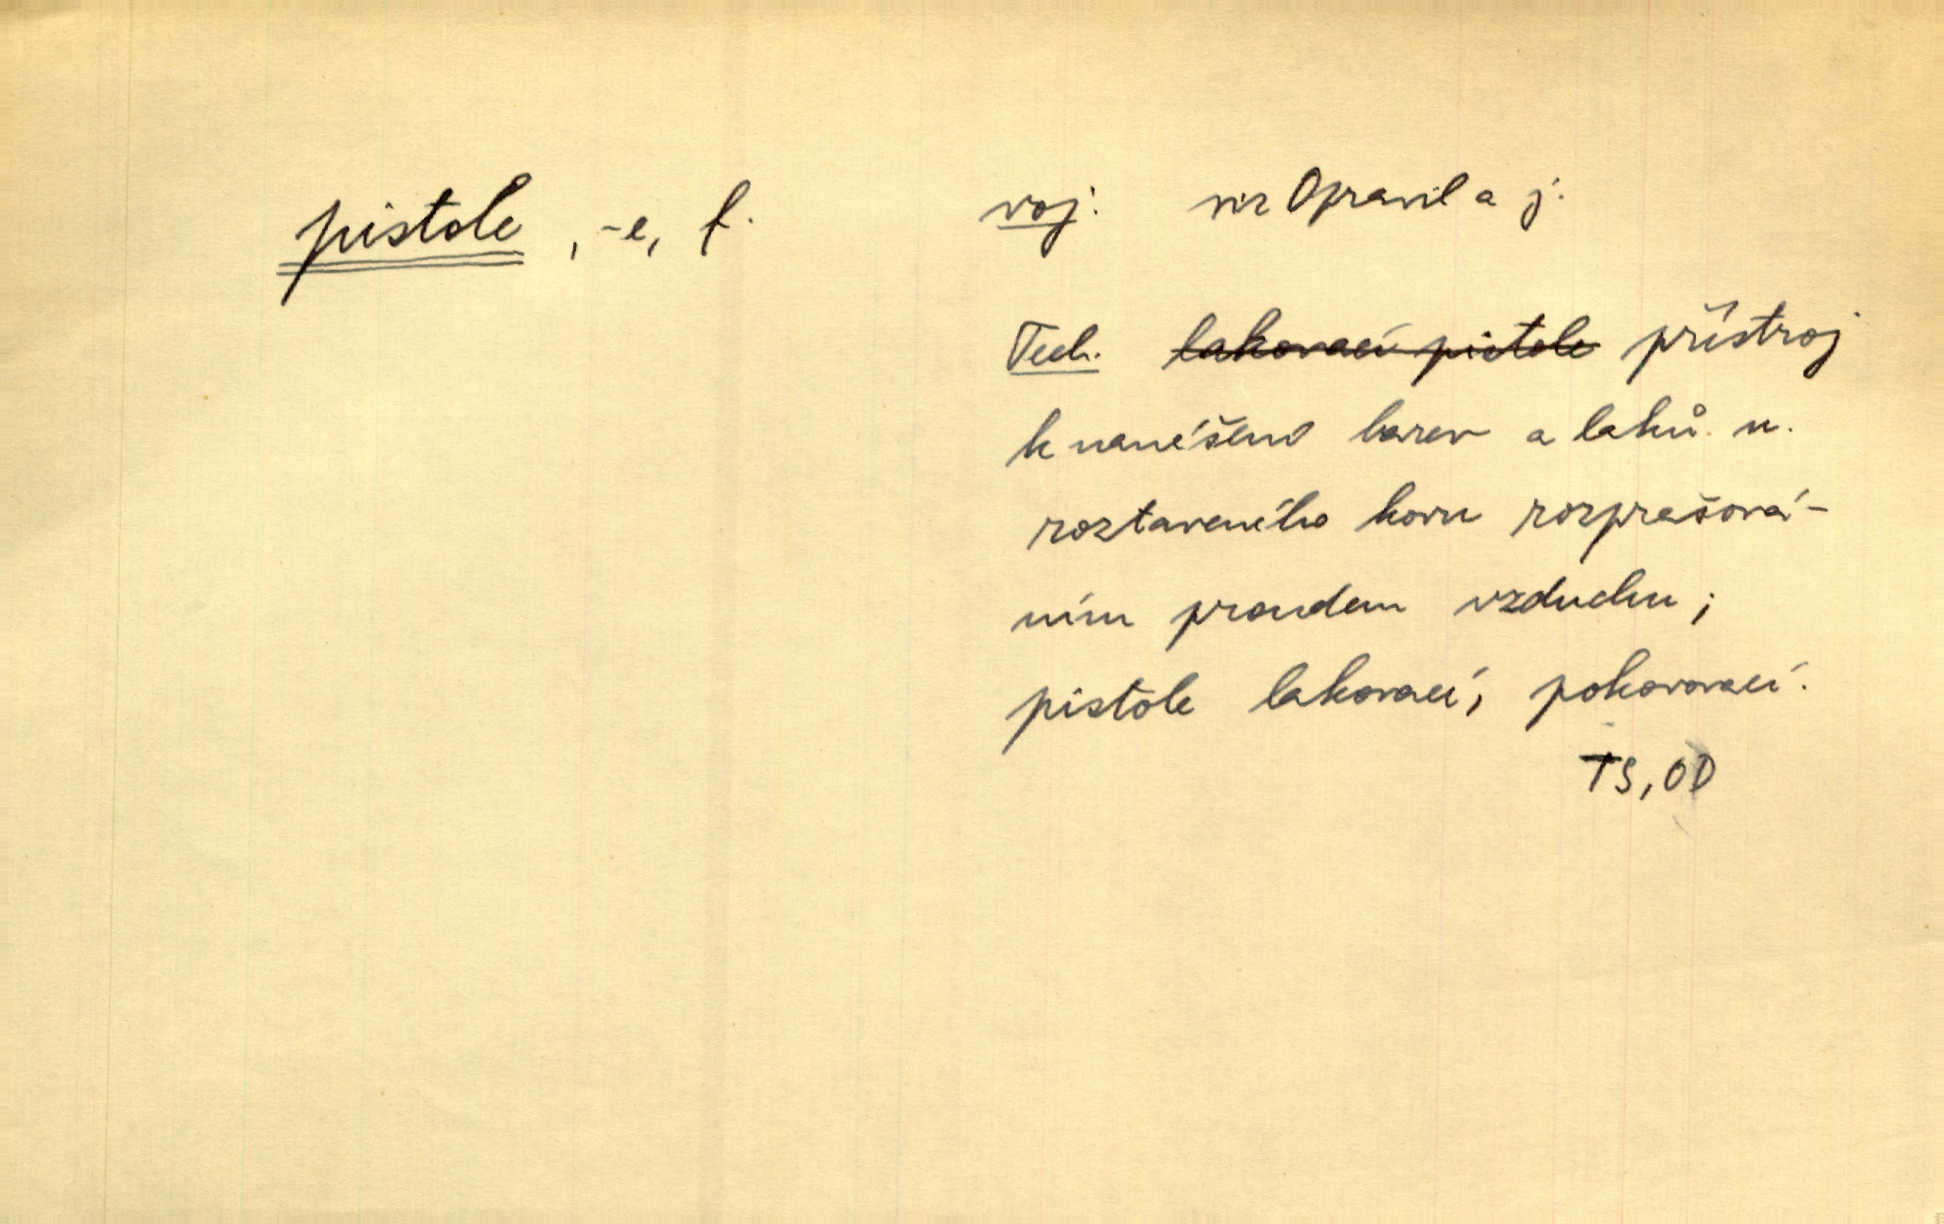 pistole, -e, f.
voj. viz Opravil a j.
Tech. lakovací pistole přístroj
k nanášení barev a laků n.
roztaveného kovu rozprašová-
ním proudem vzduchu;
pistole lakovací, pokovovací.
TS, OD